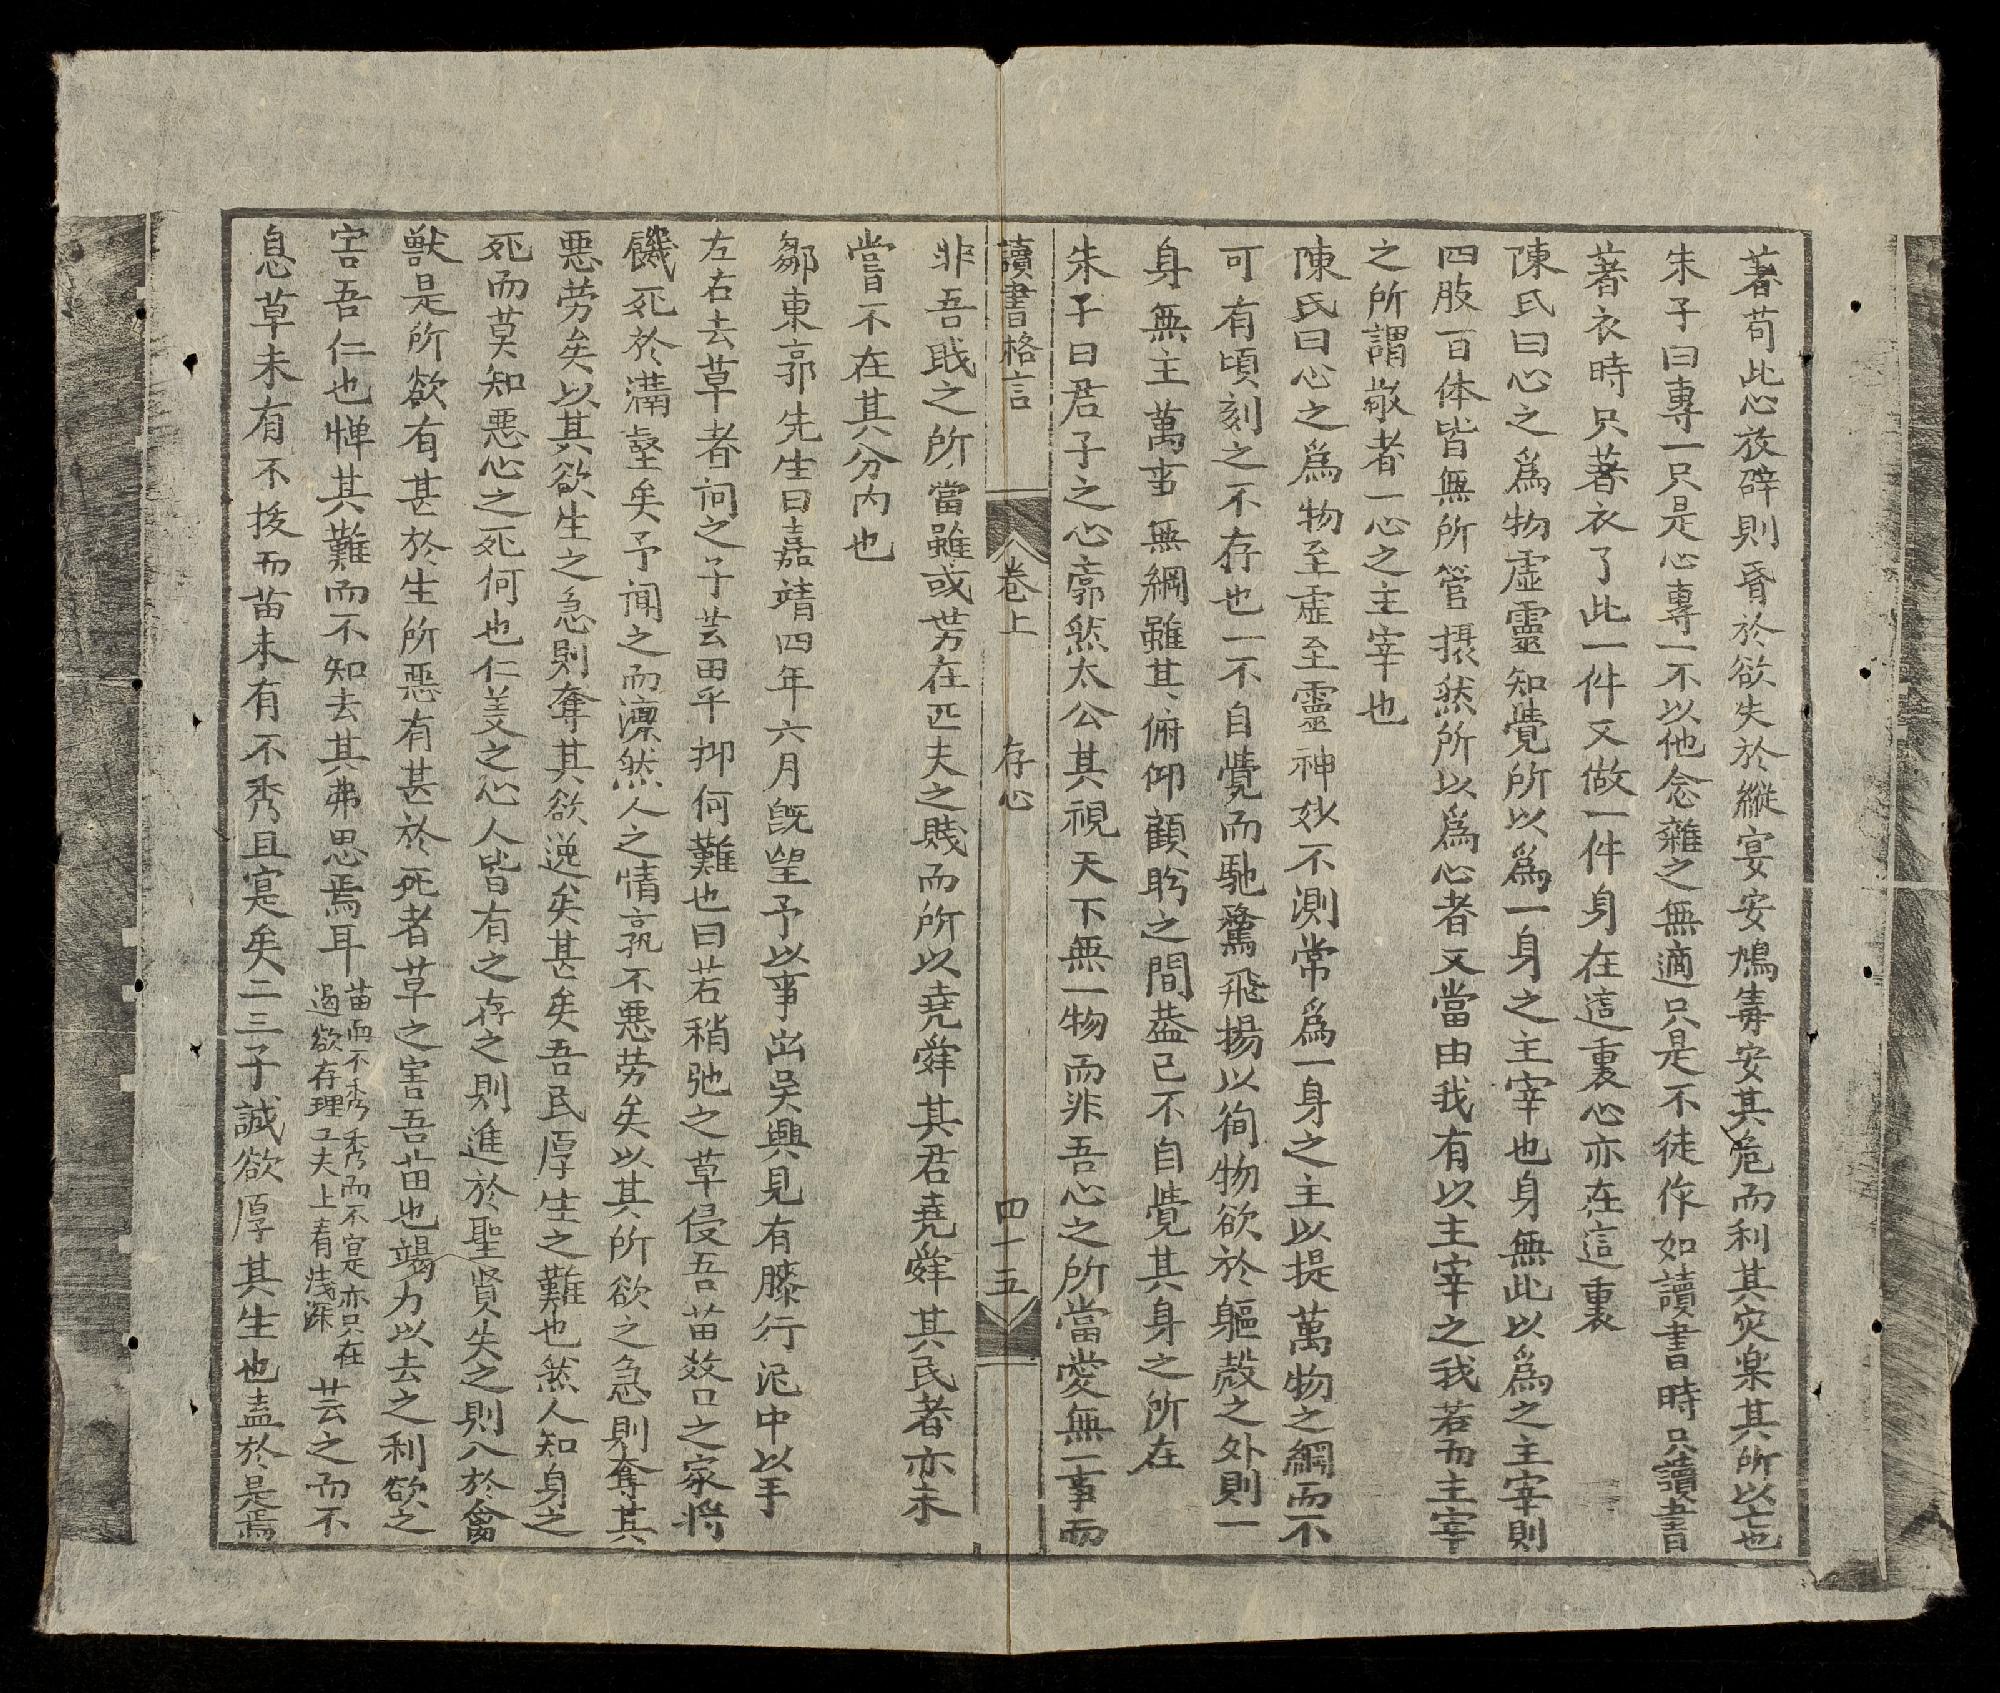 著苟此心放辟則昏於欲失於縱宴安鴆毒安其危而利其灾楽其所以亡也
朱子曰專一只是心專一不以他念雜之無適只是不徒作如讀書時只讀書
著衣時只著衣了此一件又做一件身在這裏心亦在這裏
陳氏曰心之爲物虛靈知覺所以爲一身之主宰也身無此以爲之主宰則
四肢百体皆無所管摄然所以爲心者又當由我有以主宰之我若而主宰
之所謂敬者一心之主宰也
陳氏曰心之爲物至虛至靈神妙不測常爲一身之主以提萬物之綱而不
可有頃刻之不存也一不自覺而馳騖飛揚以徇物欲於軀殼之外則一
身無主萬事無綱雖其俯仰顧盼之間盖已不自覺其身之所在
朱子曰君子之心廓然太公其視天下無一物而非吾心之所當愛無一事而
讀書格言 卷上 存心 四十五
非吾職之所當雖或勢在匹夫之賤而所以堯舜其君堯舜其民者亦未
嘗不在其分内也
鄒東郭先生曰嘉靖四年六月旣望予以事出吳興見有膝行泥中以手
左右去草者祠之子芸田乎抑何難也曰若稍弛之草侵吾苗数口之家将
饑死於溝壑矣予聞之而凛然人之情言孰不惡劳矣以其所欲之急則奪其
惡劳矣以其欲生之急則奪其欲逸矣甚矣吾民厚生之難也然人知身之
死而莫知惡心之死何也仁義之心人皆有之存之則進於聖賢失之則入於禽
獸是所欲有甚於生所惡有甚於死者草之害吾苗也竭力以去之利欲之
害吾仁也惮其難而不知去其弗思焉耳 苗而不秀秀而不寔亦只在 遏欲存理工夫上有浅深 芸之而不
息草未有不拔而苗未有不秀且寔矣二三子誠欲厚其生也盍於是焉